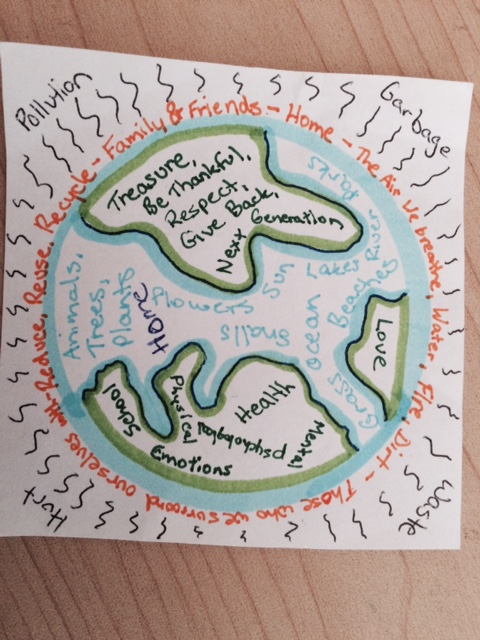 Pollution
Garbage
Waste
Hurt
Reduce, Reuse, Recycle - Family & Friends - Home - The Air we breathe, Water, Fire, Dirt - Those who we surround ourselves with -
Treasure,
Be Thankful,
Respect,
Give Back,
Next Generation
Parks
Lakes River
Beaches
Sun
Ocean
Grass
Animals,
Trees,
Plants
Home
Flowers
Snails
Love
School
Physical
Health
Mental
Emotions